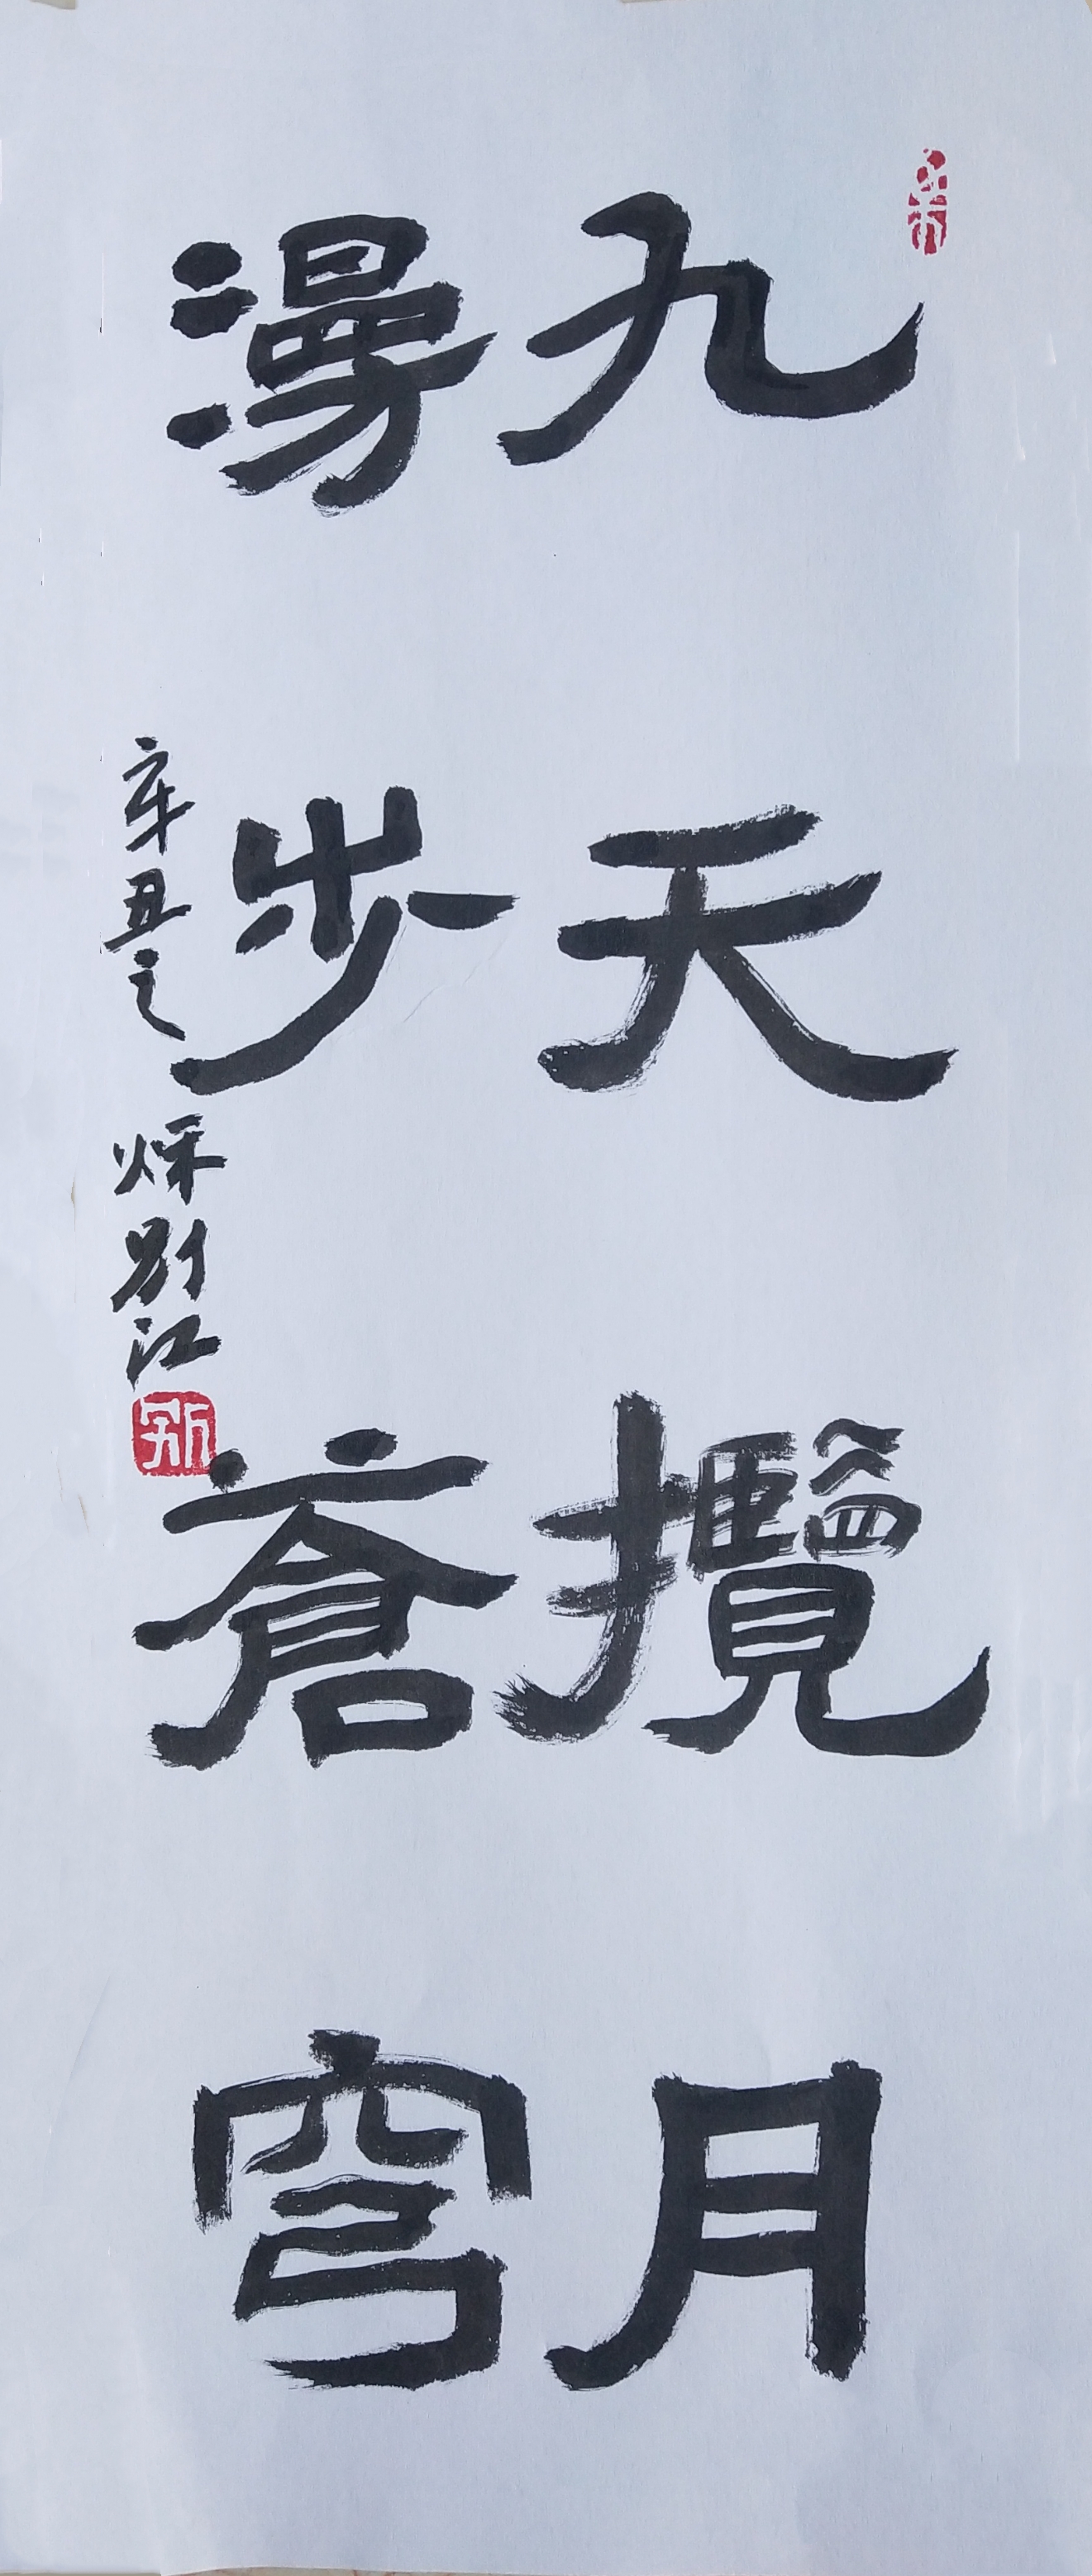 九天攬月
漫步蒼穹
辛丑之秌別江